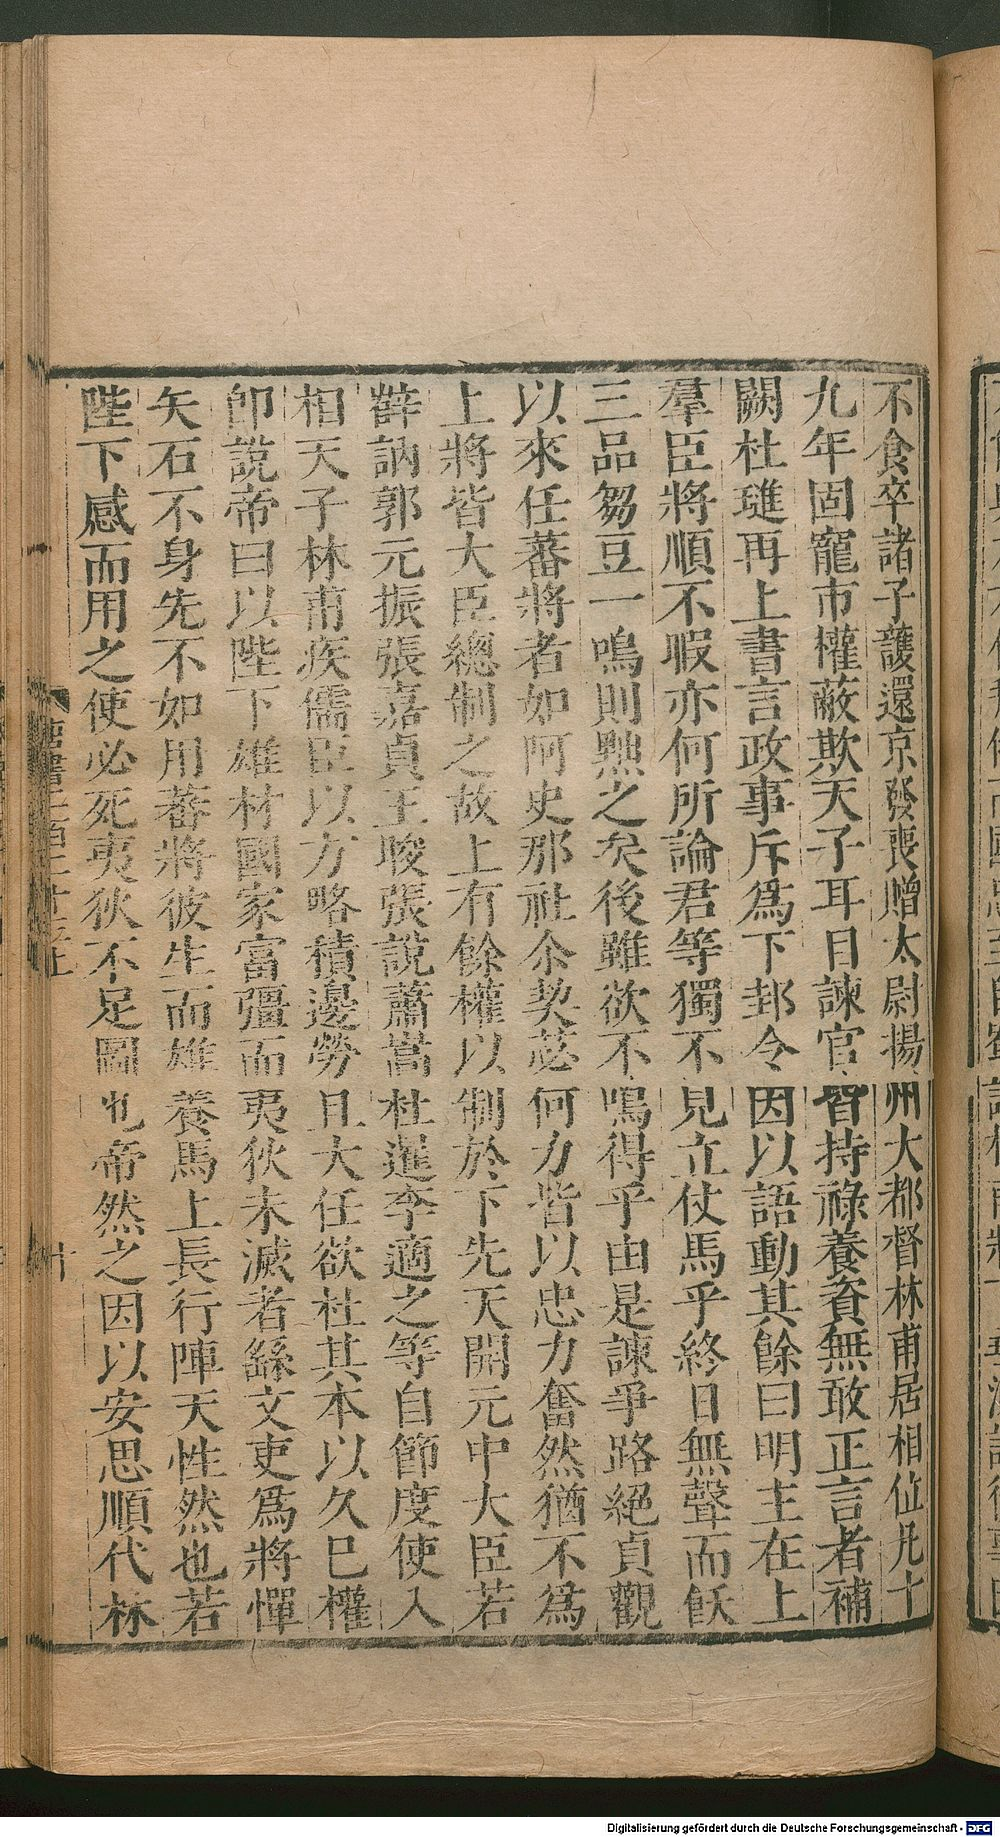 不食卒諸子護還京發喪贈太尉揚州大都督林甫居相位凡十
九年固寵市權蔽欺天子耳目諫官皆持祿養資無敢正言者補
闕杜璡再上書言政事斥爲下邽令因以語動其餘曰明主在上
羣臣將順不暇亦何所論君等獨不見立仗馬乎終日無聲而飫
三品芻豆一鳴則黜之矣後雖欲不鳴得乎由是諫爭路絕貞觀
以來任蕃將者如阿史那社尒契苾何力皆以忠力奮然猶不爲
上將皆大臣總制之故上有餘權以制於下先天開元中大臣若
薛訥郭元振張嘉貞王晙張說蕭嵩杜暹李適之等自節度使入
相天子林甫疾儒臣以方略積邊勞且大任欲杜其本以久已權
卽說帝曰以陛下雄材國家富彊而夷狄未滅者繇文吏爲將憚
矢石不身先不如用蕃將彼生而雄養馬上長行陣天性然也若
陛下感而用之使必死夷狄不足圖也帝然之因以安思順代林
唐書二百二十三上
十
Digitalisierung gefördert durch die Deutsche Forschungsgemeinschaft - DFG